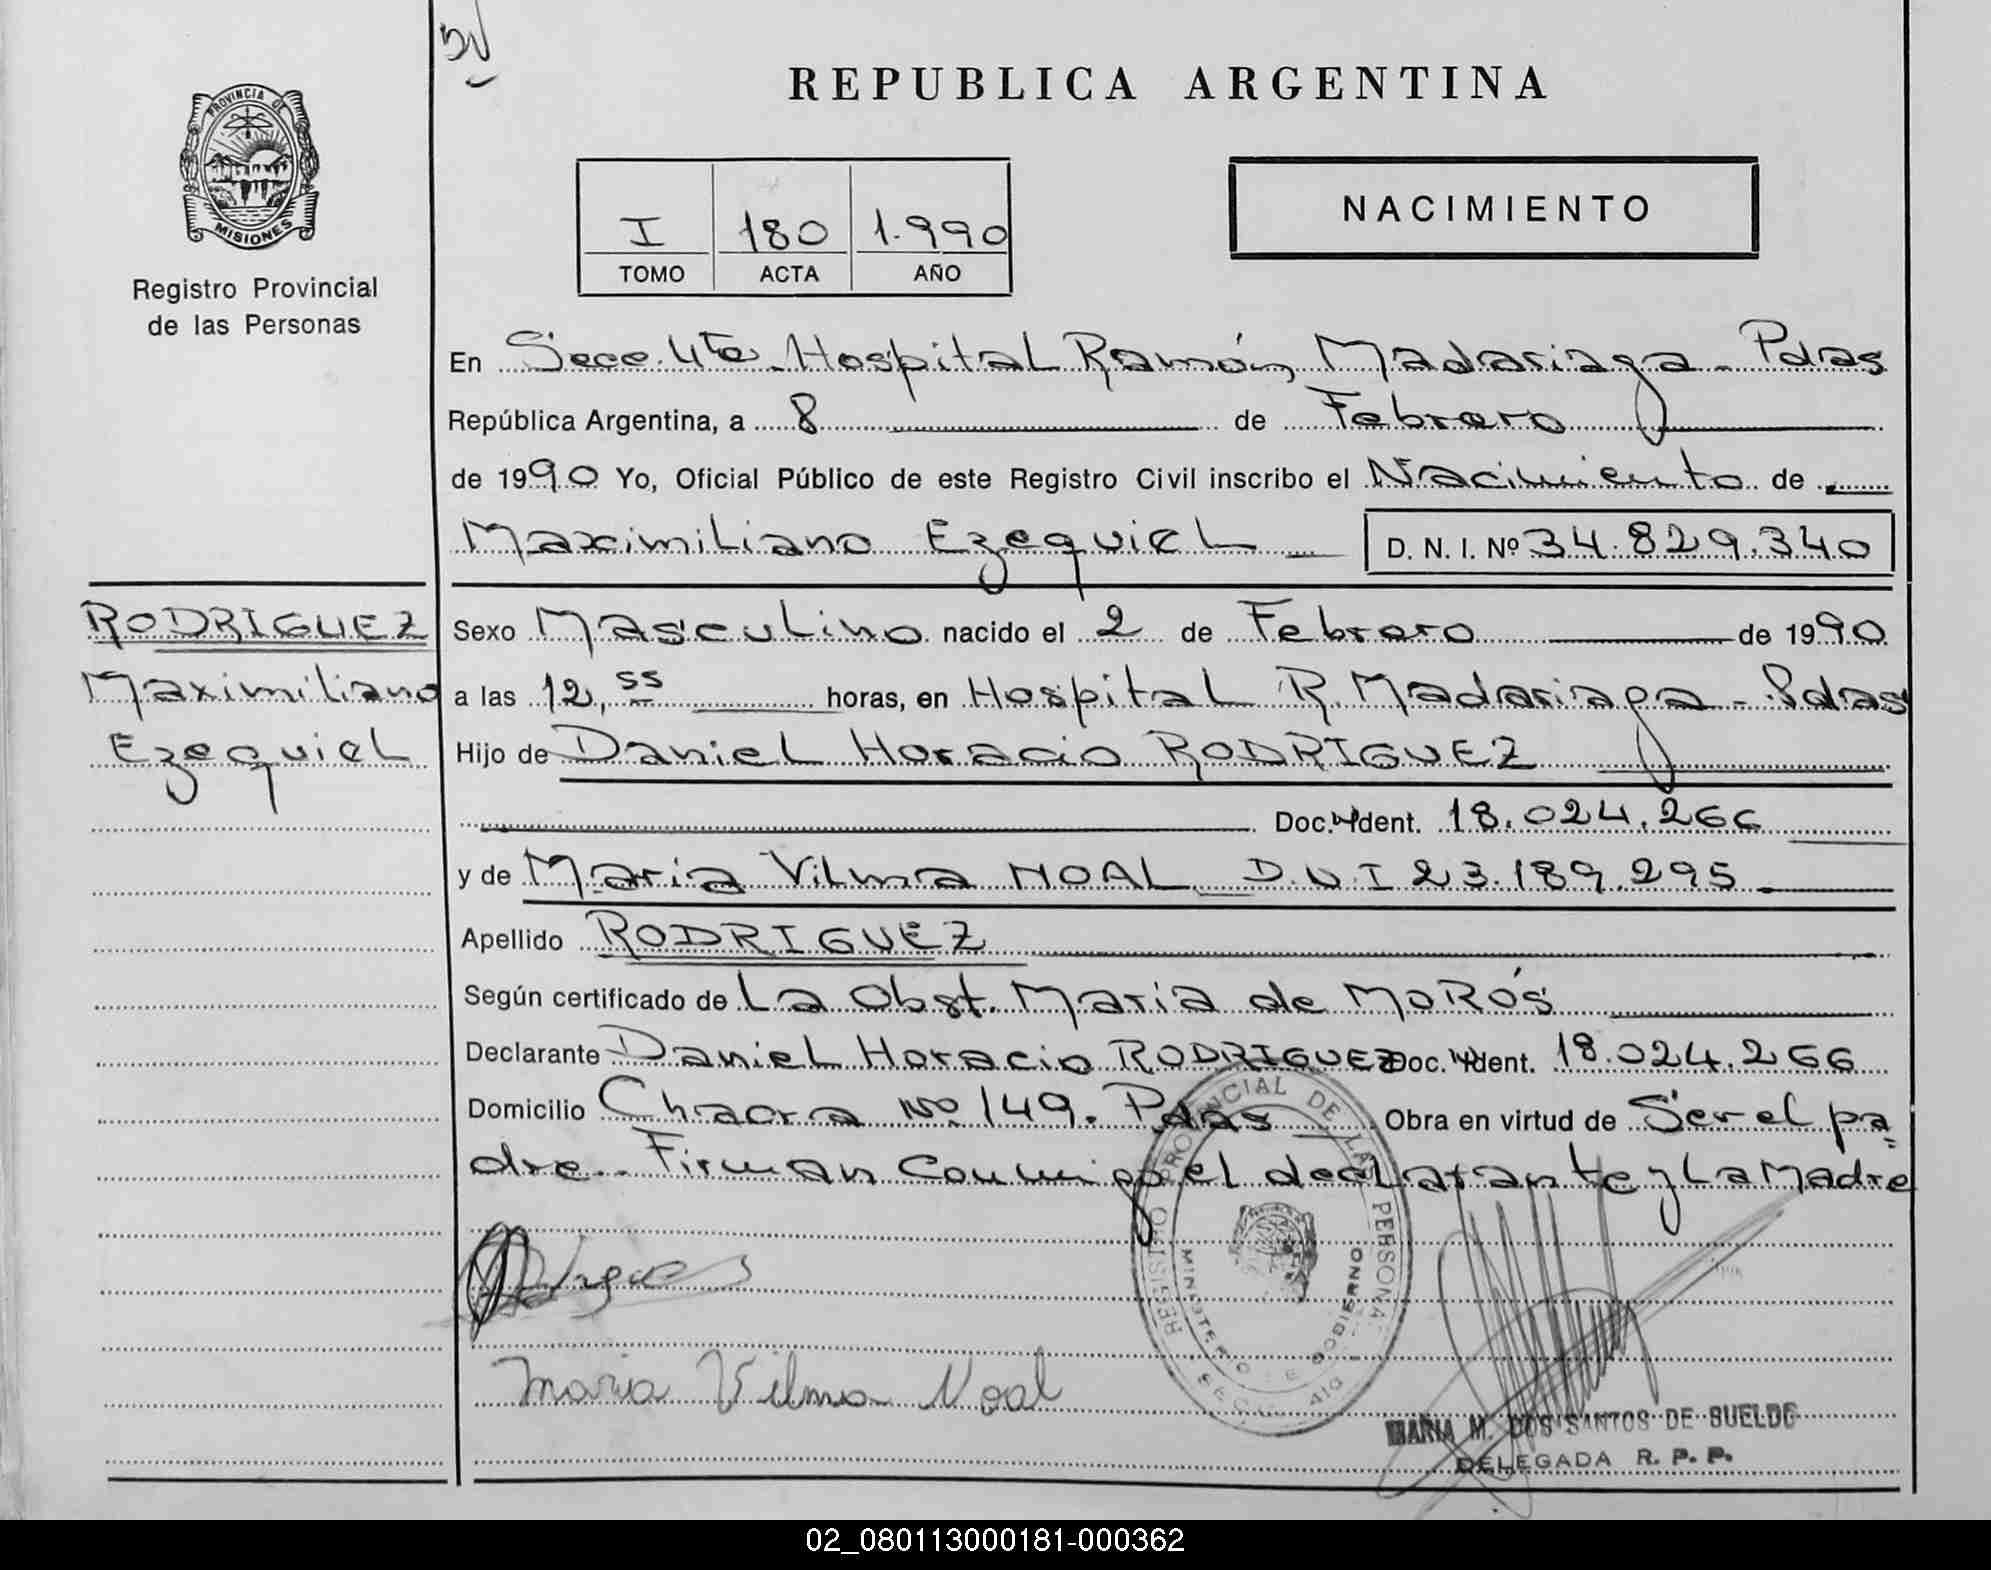 PROVINCIA DE
MISIONES
Registro Provincial
de las Personas
RODRIGUEZ
Maximiliano
Ezequiel
REPUBLICA ARGENTINA
I 180 1.990
TOMO ACTA AÑO
NACIMIENTO
En Secc. 4ta. Hospital Ramón Madariaga - Pdas
República Argentina, a 8 de Febrero
de 1990 Yo, Oficial Público de este Registro Civil inscribo el Nacimiento de
Maximiliano Ezequiel D. N. I. Nº 34.829.340
Sexo Masculino nacido el 2 de Febrero de 1990
a las 12,55 horas, en Hospital R. Madariaga - Pdas
Hijo de Daniel Horacio RODRIGUEZ
Doc. Ident. 18.024.266
y de Maria Vilma NOAL D.N.I 23.189.295
Apellido RODRIGUEZ
Según certificado de La Obst. Maria de MoRós
Declarante Daniel Horacio RODRIGUEZ Doc. Ident. 18.024.266
Domicilio Chacra Nº 149. Pdas Obra en virtud de Ser el pa-
dre. Firman conmigo el declarante y La Madre
REGISTRO PROVINCIAL DE LAS PERSONAS
MINISTERIO DE GOBIERNO
Maria Vilma Noal
MARIA M. DOS SANTOS DE SUELDO
DELEGADA R. P. P.
02_080113000181-000362